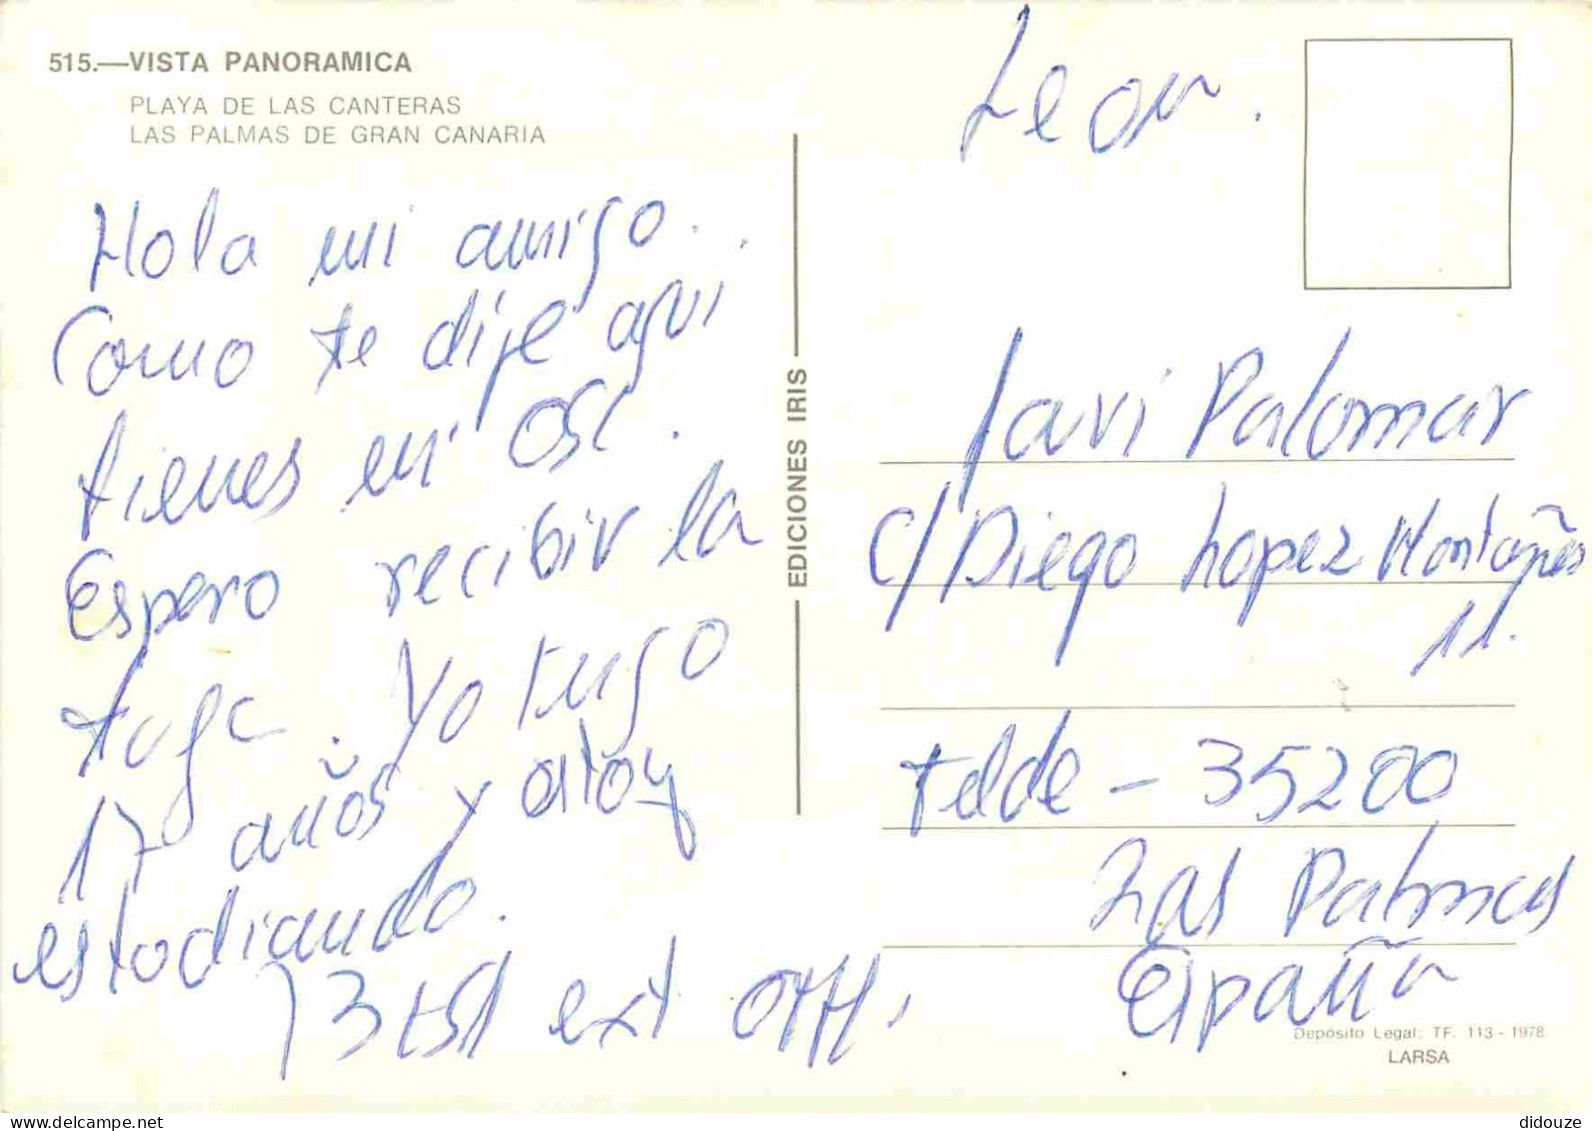 515.—VISTA PANORAMICA
PLAYA DE LAS CANTERAS
LAS PALMAS DE GRAN CANARIA
Hola mi amigo..
Como te dije aqui
tienes mi QSL.
Espero recibir la
tuya. Yo tengo
17 años y estoy
estudiando.
73 DX
EDICIONES IRIS
Leon.
Javi Palomar
C/Diego Lopez Montañes
11.
telde - 35200
Las Palmas
España
Depósito Legal: TF. 113 - 1978
LARSA
delcampe.net
didouze